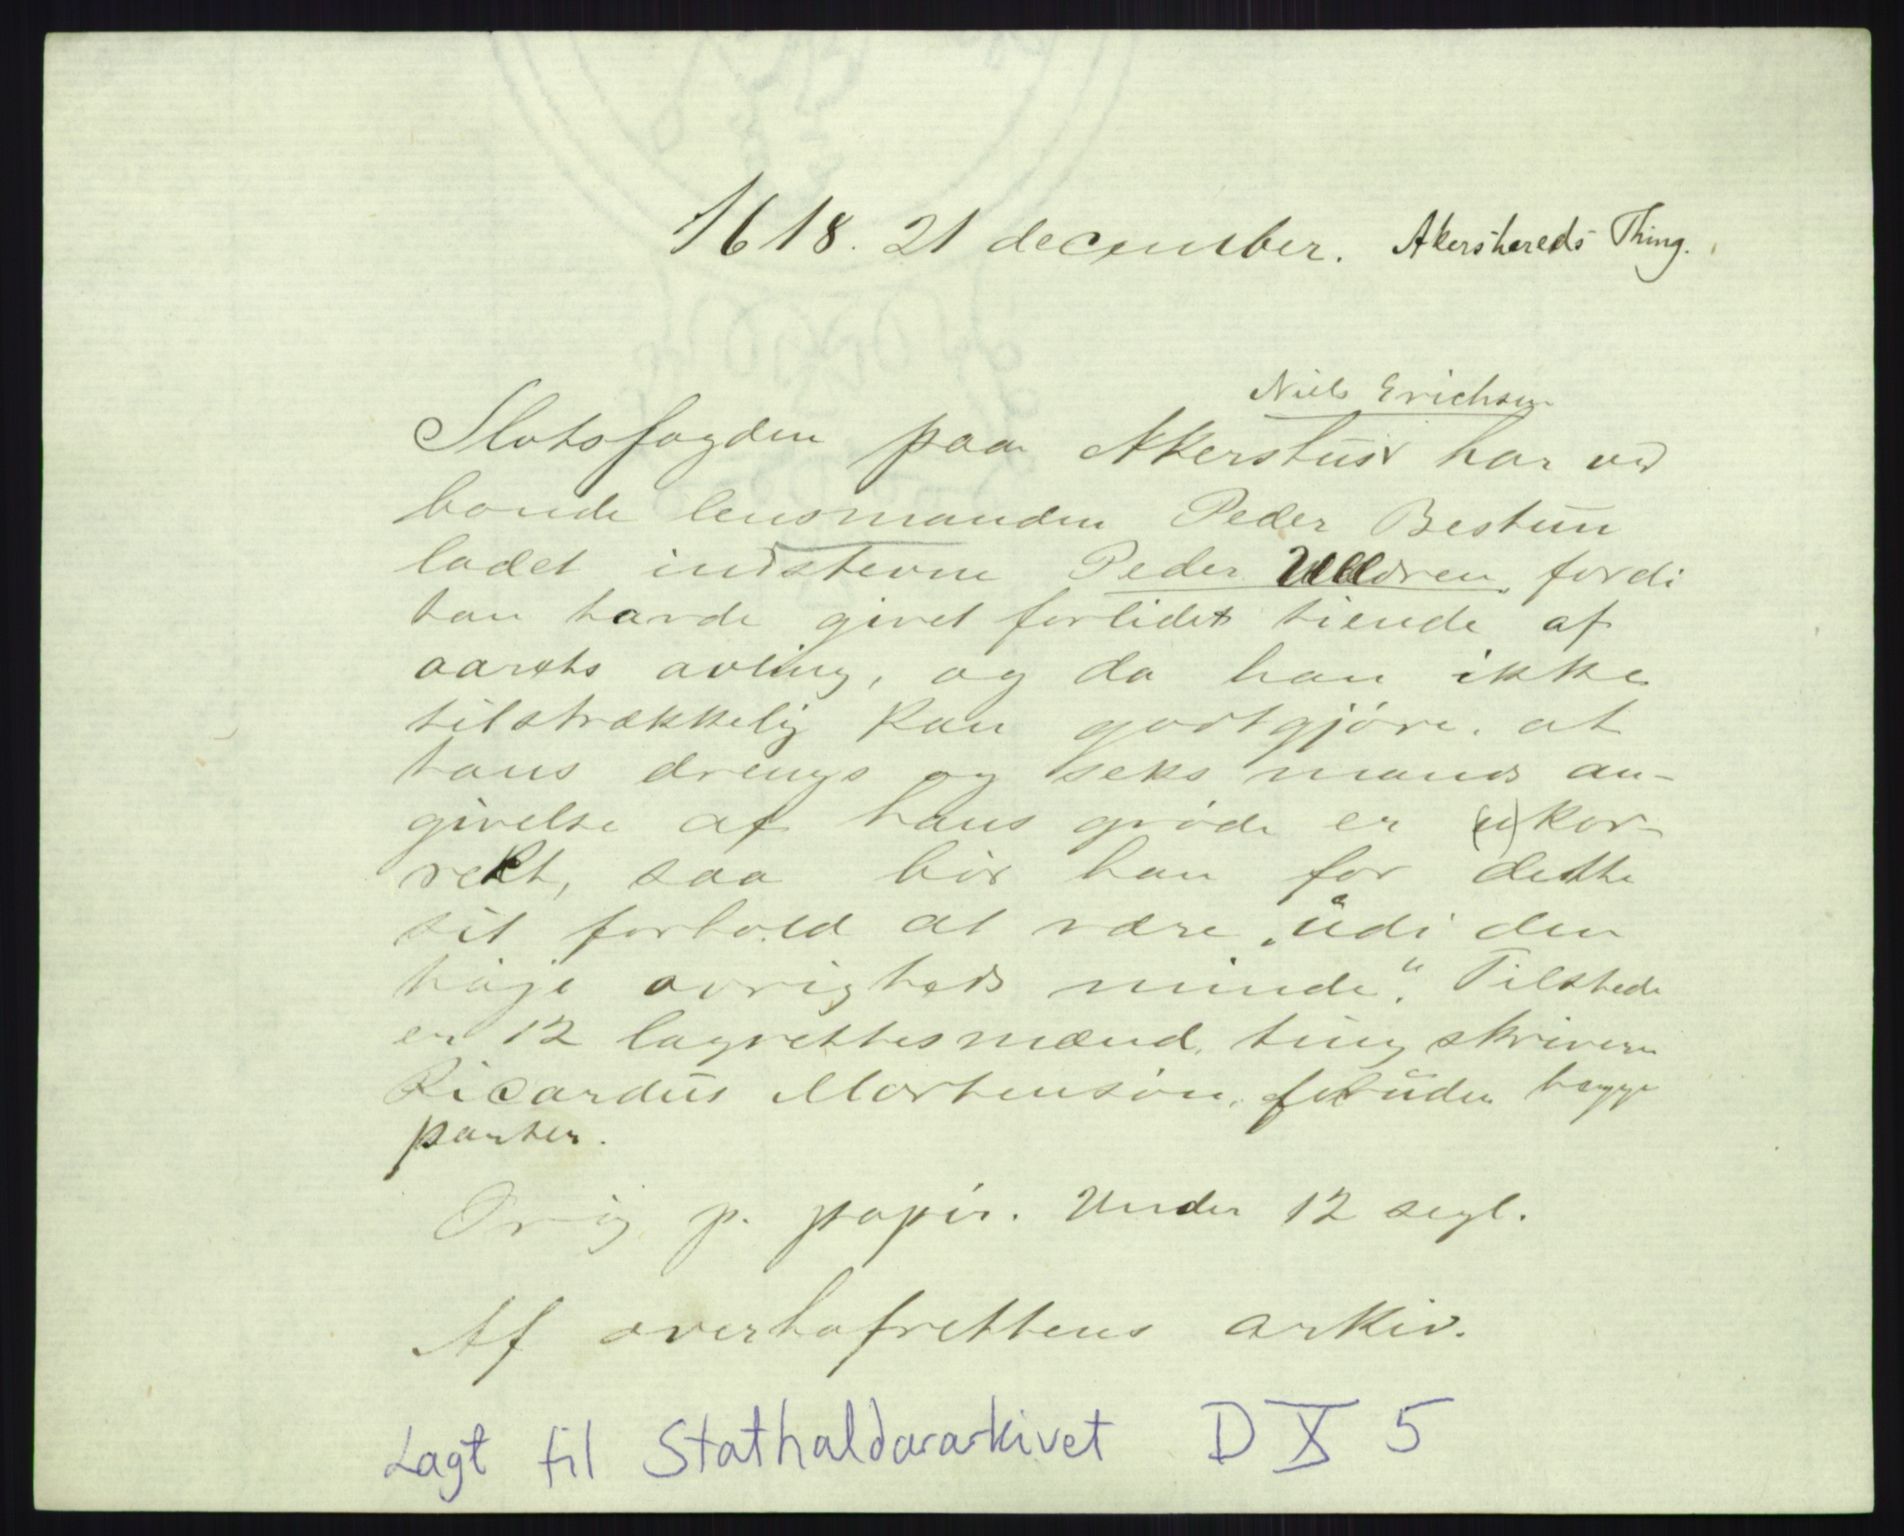 1618. 21 december. Akersherreds Thing.
Niels Erichsen
Slotsfogden paa Akershus har ved
bonde lensmanden Peder Bestun
ladet indstevne Peder Ulloren, fordi
han havde givet forlidet tiende af
aarets avling, og da han ikke
tilstrækkelig kan godtgjöre, at
hans drengs og seks mands an-
givelse af hans gröde er (u)kor-
rekt, saa bör han for dette
sit forhold at være „udi den
höje övrigheds minde“. Tilstede
er 12 lagrettesmænd, tingskriveren
Ricardus Mortensön, foruden begge
parter.
Orig p. papir. Under 12 segl.
Af overhofrettens arkiv.
Lagt til Stathaldararkivet D X 5